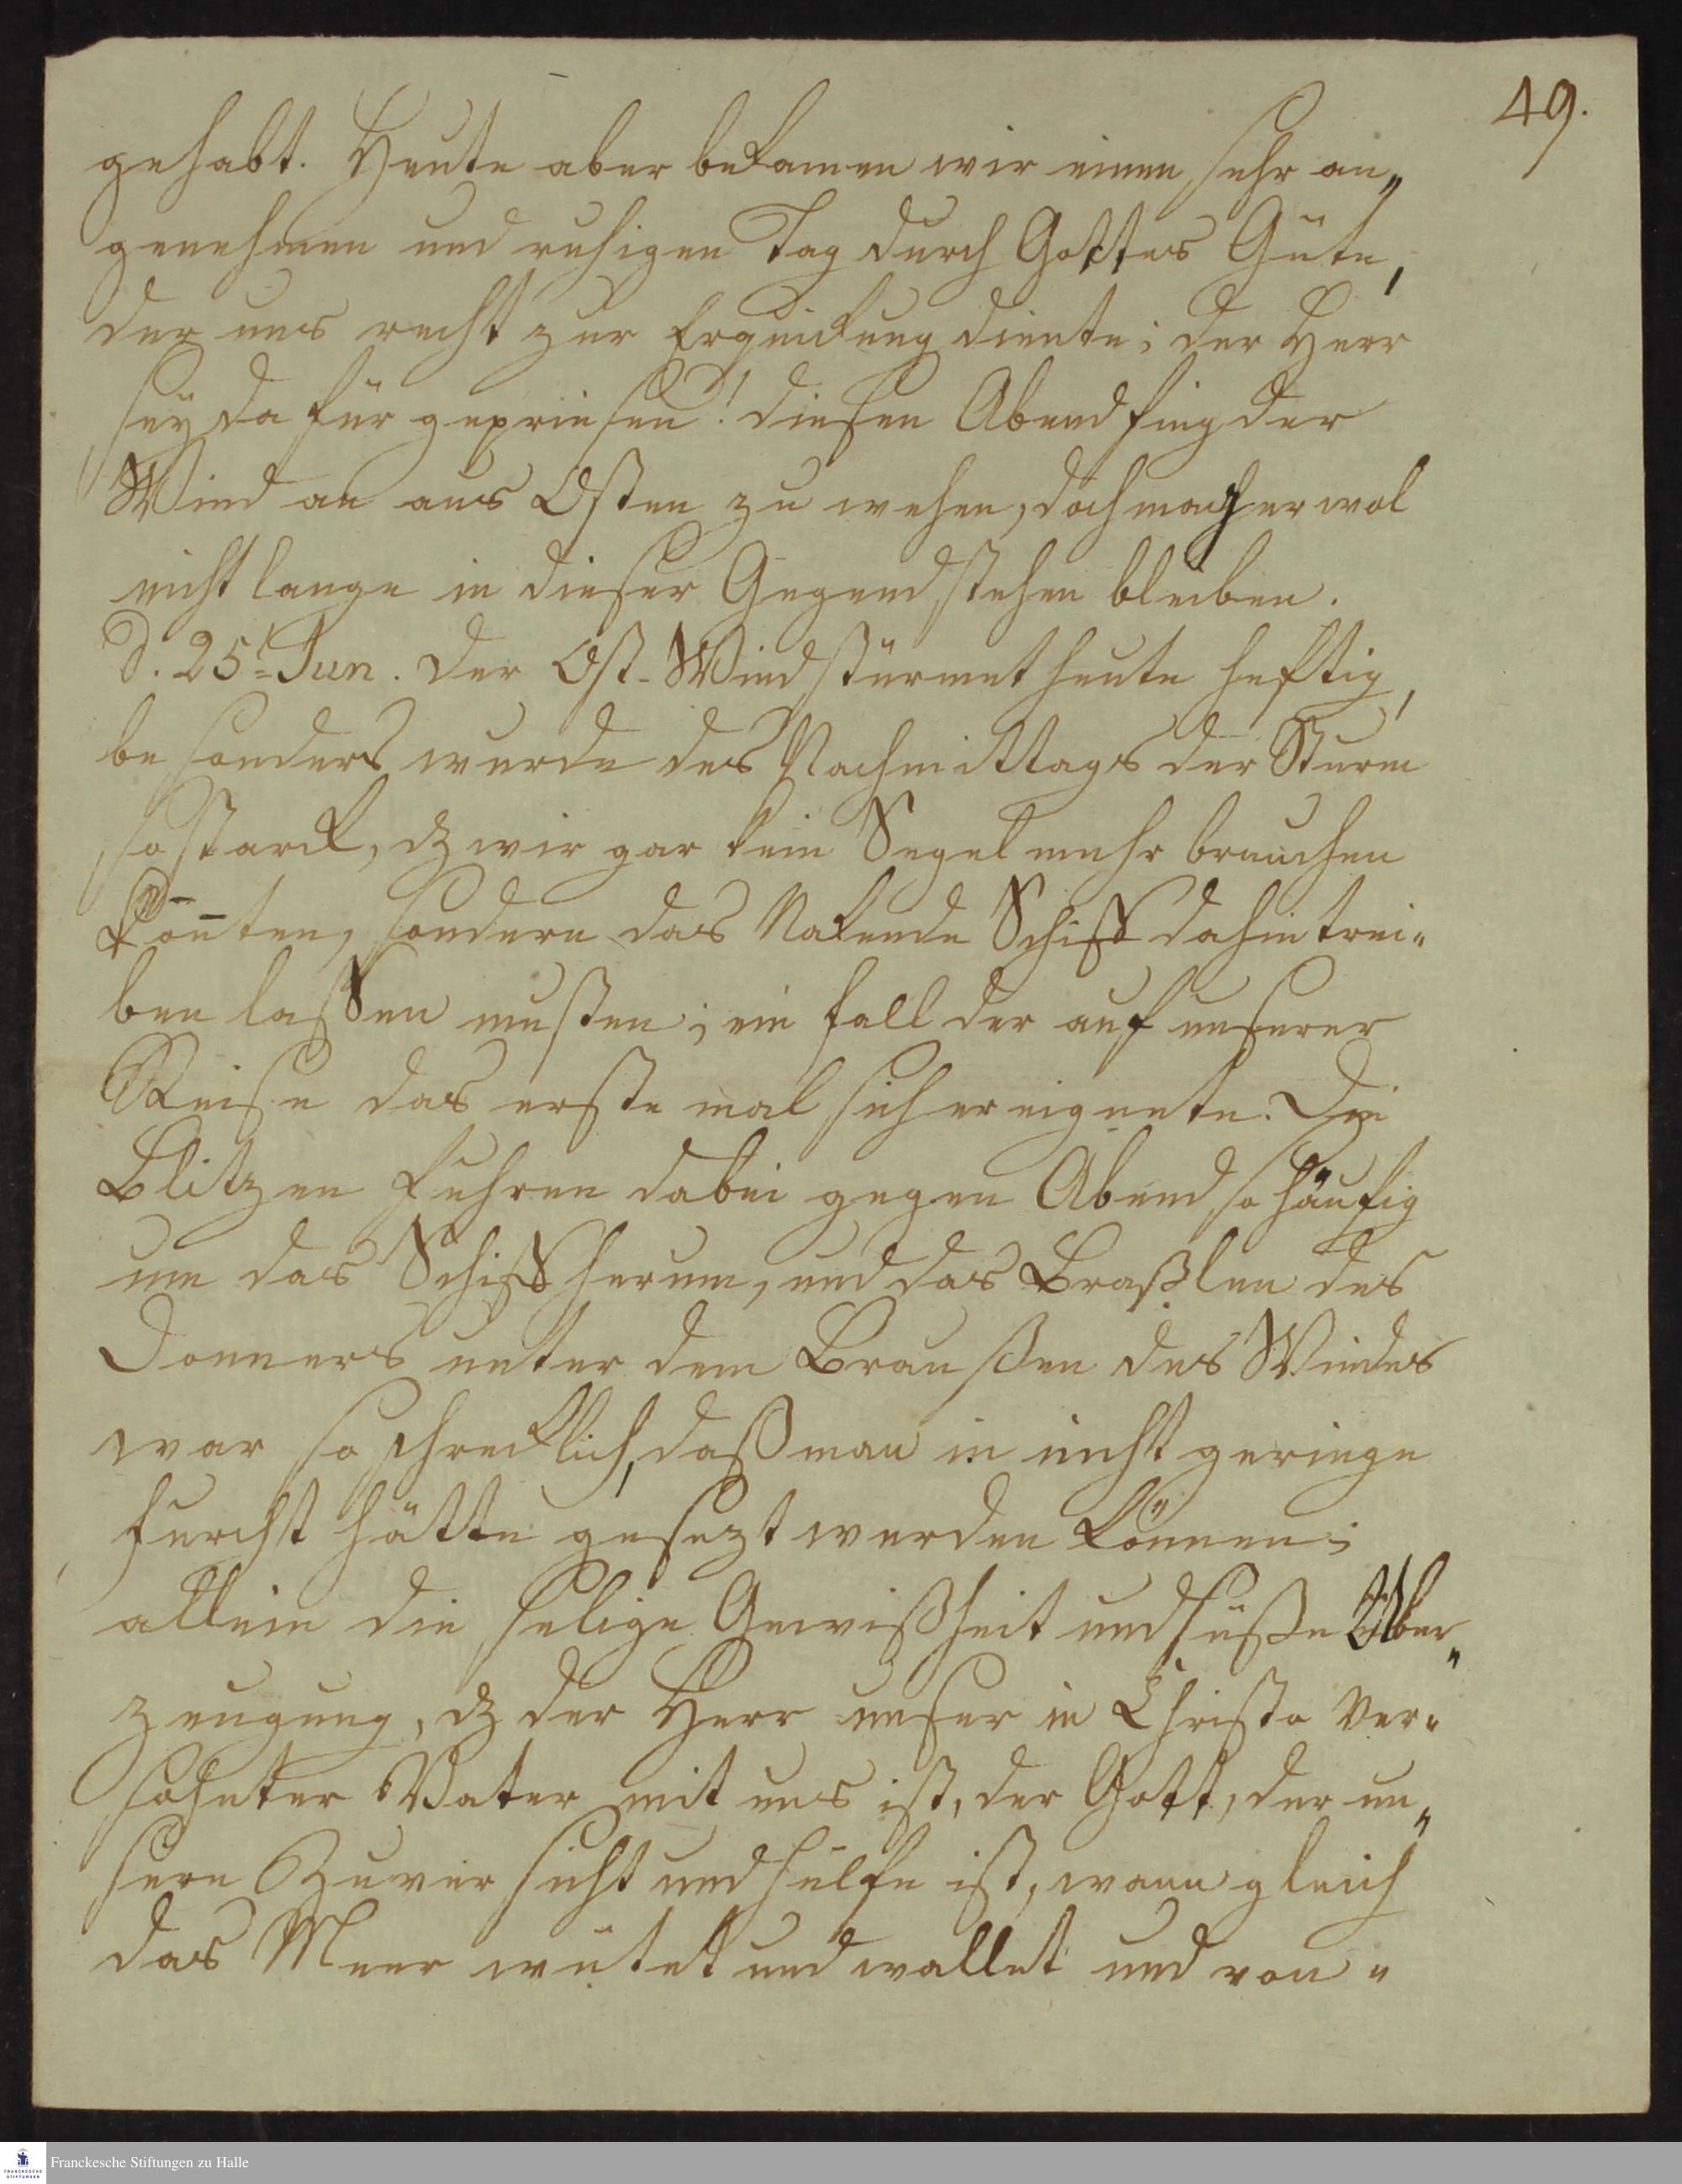 49.
gehabt. Heute aber bekamen wir einen sehr an„
genehmen und ruhigen Tag durch Gottes Güte,
der uns recht zur Erquickung diente; der Herr
sey da für gepriesen! diesen Abend fing der
Wind an aus Osten zu wehen, doch mag er wol
nicht lange in dieser Gegend stehen bleiben.
d. 25t Jun. Der Ost-Wind stürmet heute heftig,
besonders wurde des Nachmittags der Sturm
so starck, dz wir gar kein Segel mehr brauchen
kon̄ten, sondern das Nakende Schiff dahin trei„
ben laßen musten; ein fall der auf unserer
Reise das erste mal sich ereignete. Die
Blitzen fuhren dabei gegen Abend so häufig
um das Schiff herum, und das Braßlen des
Donners unter dem Braußen des Windes
war so schrecklich, daß man in nicht geringe
furcht hätte gesezt werden können;
allein die selige Gewißheit und süße Über„
zeugung, dz der Herr unser in Christo ver„
söhnter Vater mit uns ist, der Gott, der un„
sere Zuversicht und hülfe ist, wann gleich
das Meer wütet und wallet und von„
Franckesche Stiftungen zu Halle
FRANCKESCHE
STIFTUNGEN